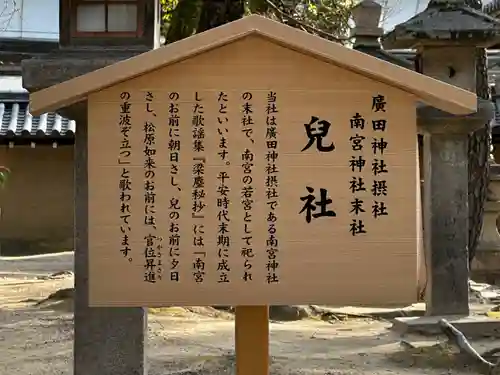 廣田神社摂社
南宮神社末社
兒社
当社は廣田神社摂社である南宮神社
の末社で、南宮の若宮として祀られ
たといいます。平安時代末期に成立
した歌謡集『梁塵秘抄』には「南宮
のお前に朝日さし、兒のお前に夕日
さし、松原如来のお前には、官位昇進
つかさまさりし
の重波ぞ立つ」と歌われています。